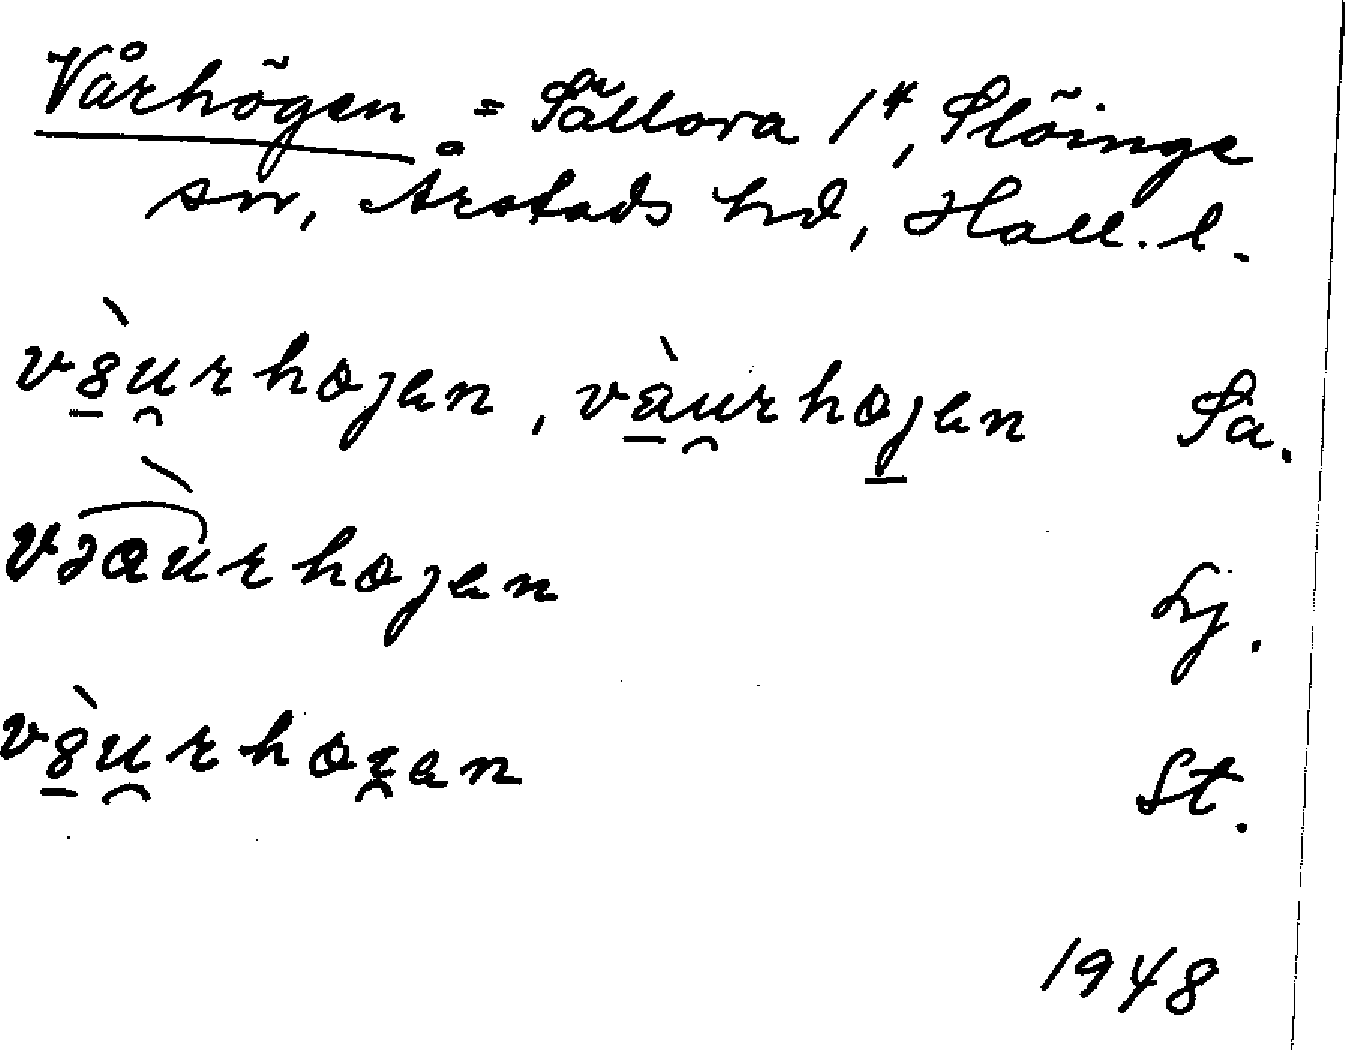 Vårhögen = Sällora 1⁴, Slöinge
sn, Årstads hd, Hall. l.
vè̱u̯rhojen, vàu̯rhoj̱en Sa.
vɔàurhojen Lj.
vè̱u̯rhoʓ̯en St.
1948